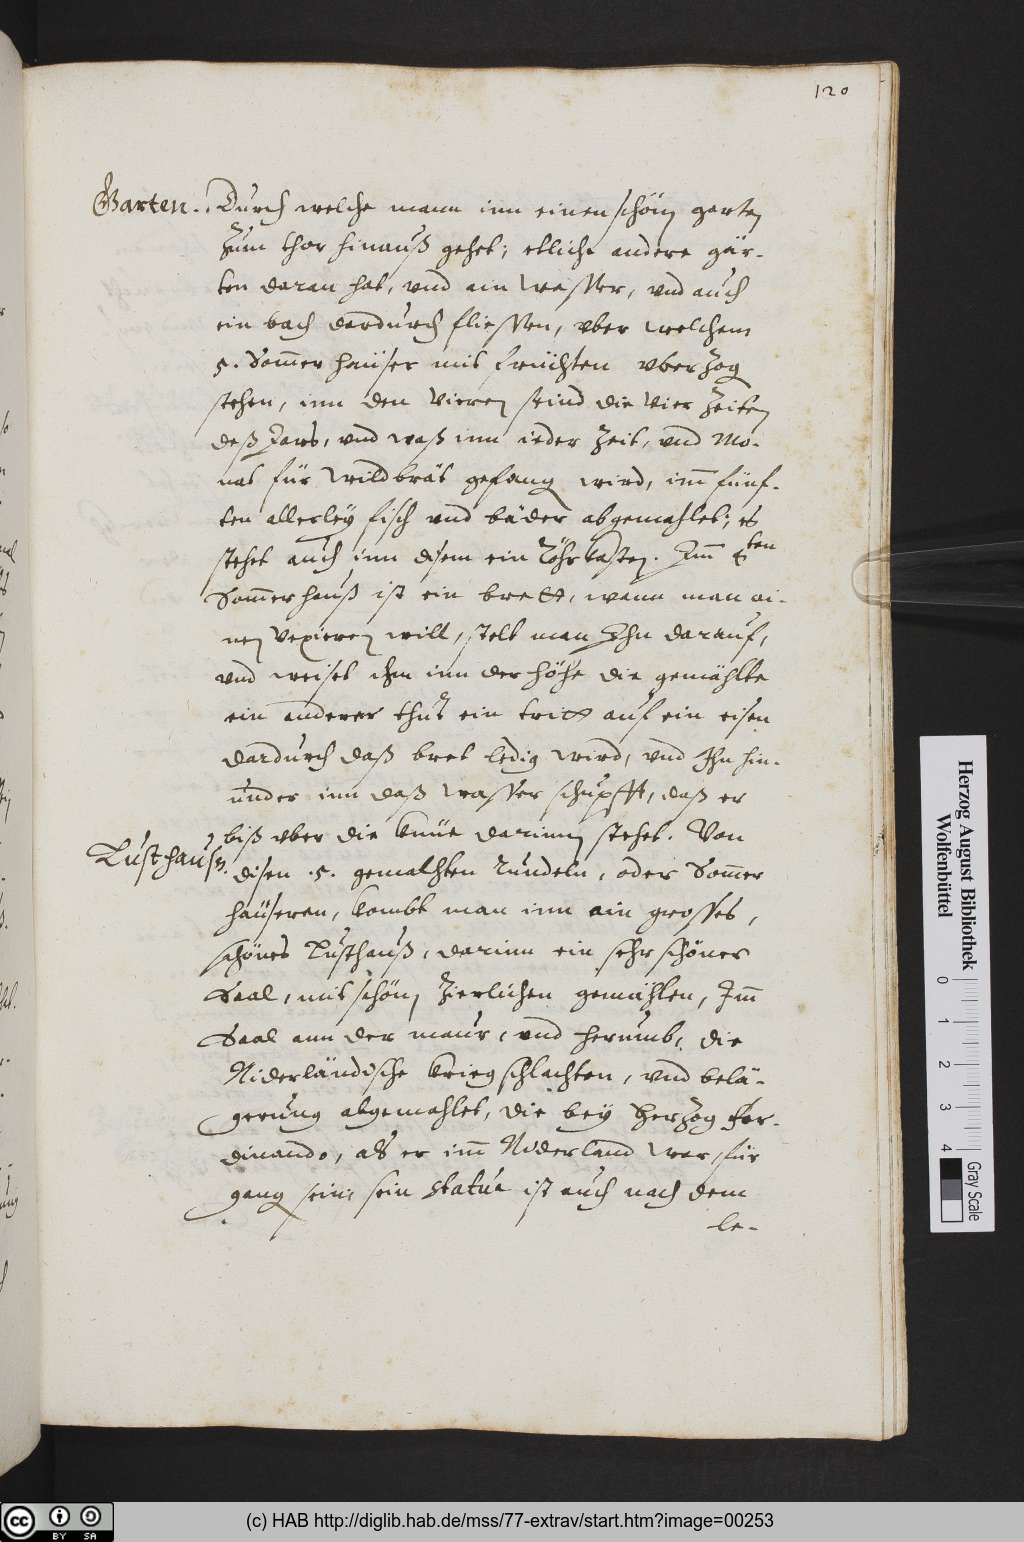 120
Garten. Durch welche mann inn einen schönen garten
zum thor hinauß gehet; etliche andere gär-
ten daran hat, vnd ain Wasser, vnd auch
ein bach dardurch fliessen, vber welchem
5. Sommer haüser mit früchten vberzog
stehen, inn den Vieren seind die Vier Zeiten
deß Jars, vnd waß inn ieder Zeit, vnd Mo-
nat für Wildbrät gefang wird, im fünf-
ten allerley fisch vnd bäder abgemahlet; es
stehet auch inn disem ein Röhrkasten. Im 5ten
Sommerhauß ist ein brett, wann man ai-
nen Vexieren will, stelt man Ihn darauf,
vnd weiset ihm inn der höhe die gemählte
ein anderer thut ein tritt auf ein eisen
dardurch daß bret ledig wird, vnd Ihn hin-
under inn daß wasser schupfft, daß er
biß vber die knüe darinnen stehet. Von
Lusthauß. disen .5. gemalhten Rundeln, oder Sommer
haüseren, kombt man inn ain grosses,
schönes Lusthauß, darinn ein sehr schöner
Saal, mit schönen Zierlichen gemählen, Im
Saal ann der maur, vnd herumb, die
Niderländische kriegschlachten, vnd belä-
gerung abgemahlet, die bey Herzog Fer-
dinando, als er im Niderland war, für
gang sein, sein statua ist auch nach dem
le-
Herzog August Bibliothek
Wolfenbüttel
0 1 2 3 4
Gray Scale
cc BY SA
(c) HAB http://diglib.hab.de/mss/77-extrav/start.htm?image=00253